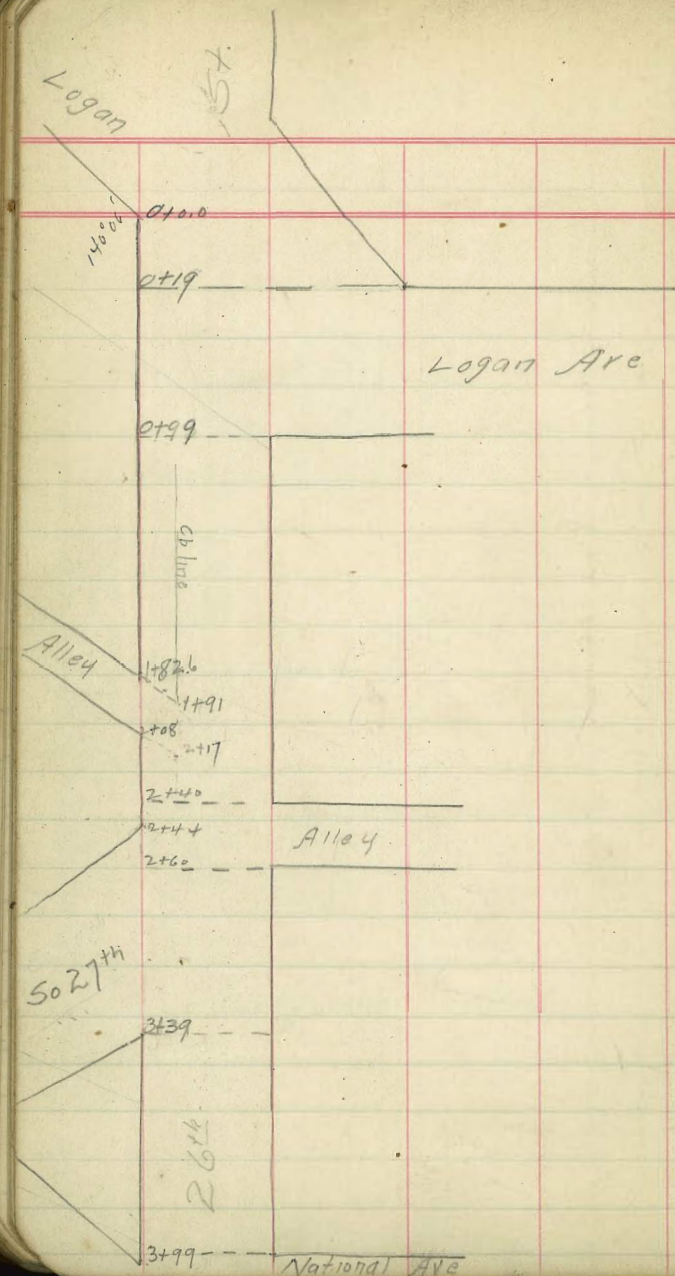 Logan
St.
0+0.0
140°06'
0+19
Logan Ave
0+99
Cb line
Alley
1+82.6
1+91
2+08
2+17
2+40
2+44
Alley
2+60
So 27th
3+39
26th
3+99
National Ave